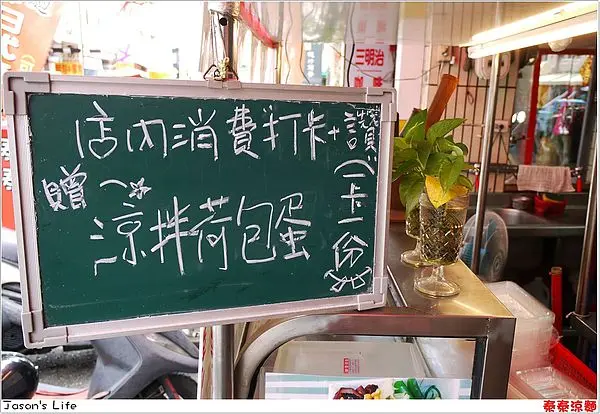 三明治
店內消費打卡+讚
(一卡一份)
贈~☆
涼拌荷包蛋
Jason's Life
秦秦涼麵